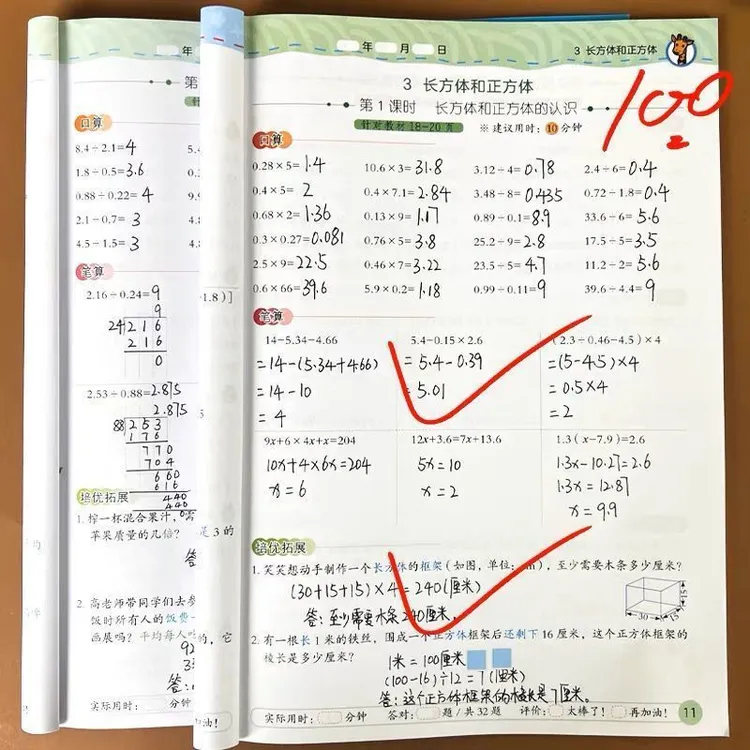 年
第
口算
8.4÷2.1=4
5.4
1.8÷0.5=3.6
0.88÷0.22=4
9.9
2.1-0.7=3
4.8
4.5-1.5=3
4.8
笔算
2.16÷0.24=9
-1.8)]
9
24 216
216
0
2.53÷0.88=2.875
2.875
88 253
176
770
704
660
616
440
440
培优拓展
1. 榨一杯混合果汁,需
是3的
苹果质量的几倍?
答
2. 高老师带同学们去参
饭时所有人的饭费
画展吗?平均每人
的,它
92
答:
实际用时: 分钟
加油!
年 月 日 3 长方体和正方体
100
3 长方体和正方体
第1课时 长方体和正方体的认识
针对教材18-20页 ※建议用时:10分钟
口算
0.28×5=1.4 10.6×3=31.8 3.12÷4=0.78 2.4÷6=0.4
0.4×5=2 0.4×7.1=2.84 3.48÷8=0.435 0.72÷1.8=0.4
0.68×2=1.36 0.13×9=1.17 0.89÷0.1=8.9 33.6÷6=5.6
0.3×0.27=0.081 0.76×5=3.8 25.2÷9=2.8 17.5÷5=3.5
2.5×9=22.5 0.46×7=3.22 23.5÷5=4.7 11.2÷2=5.6
0.6×66=39.6 5.9×0.2=1.18 0.99÷0.11=9 39.6÷4.4=9
笔算
14-5.34-4.66 5.4-0.15×2.6 (2.3÷0.46-4.5)×4
=14-(5.34+4.66) =5.4-0.39 =(5-4.5)×4
=14-10 =5.01 =0.5×4
=4 =2
9x+6×4x+x=204 12x+3.6=7x+13.6 1.3(x-7.9)=2.6
10x+4×6x=204 5x=10 1.3x-10.27=2.6
x=6 x=2 1.3x=12.87
x=9.9
培优拓展
1. 笑笑想动手制作一个长方体的框架(如图,单位:cm),至少需要木条多少厘米?
(30+15+15)×4=240(厘米)
答:至少需要木条240厘米。
30 15 15
2. 有一根长1米的铁丝,围成一个正方体框架后还剩下16厘米,这个正方体框架的
棱长是多少厘米?
1米=100厘米
(100-16)÷12=7(厘米)
答:这个正方体框架的棱长是7厘米。
实际用时: 分钟 答对: 题/共32题 评价: 太棒了! 再加油! 11